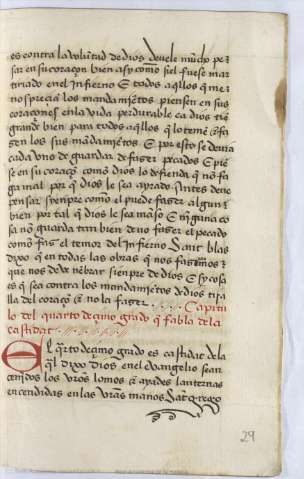 es contra la volũtad de dios deuele mucho pe
sar en su coraçon bien asy como si el fuese mar
tiriado en el infierno E todos aq̃llos que me
nospreçiã los mandamiẽtos piensen en sus
coraçones en la vida perdurable ca dios tiẽ
grande bien para todos aq̃llos q̃ lo temẽ &
fa
zen los sus mãdamiẽtos E por esto se deuia
cada vno de guardar de fazer pecados E piẽ
se en su coraçõ como dios lo defiende q̃ nõ fa
ga mal por q̃ dios le sea ayrado Antes deue
pensar syenpre como el puede fazer algun
bien por tal q̃ dios le sea mãso E ninguna co
sa nõ guarda tan bien de no fazer el pecado
como faze el temor del infierno Sant blas
dixo q̃ en todas las obras q̃ nos fagamos
que nos deue nẽbrar sienpre de dios E sy cosa
es q̃ sea contra los mandamiẽtos de dios tira
lla del coraçõ & nõ la fazer
Capitu
lo del quarto deçimo grado q̃ fabla de la
castidat
El q̃rto deçimo grado es castidat de la
q̃l dixo dios en el euangelio sean
çenidos los vr̃os lomos & ayades lanternas
ençendidas en las vr̃as manos Sãt gregorio
29